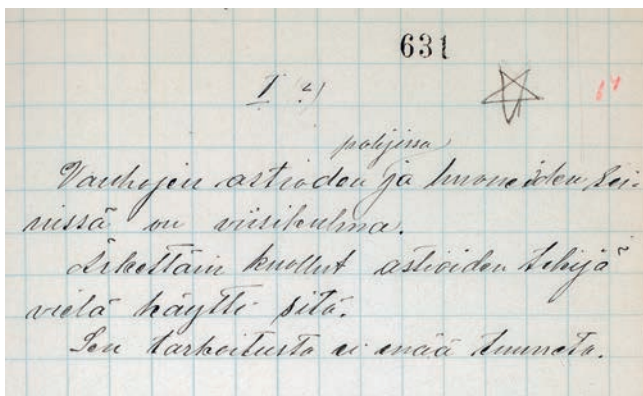 631
I 2)
64
pohjissa
Vanhojen astioden ja huoneiden sei-
nissä on viisikulma.
Äskettäin kuollut astioiden tekijä
vielä käytti sitä.
Sen tarkoitusta ei enää tunneta.